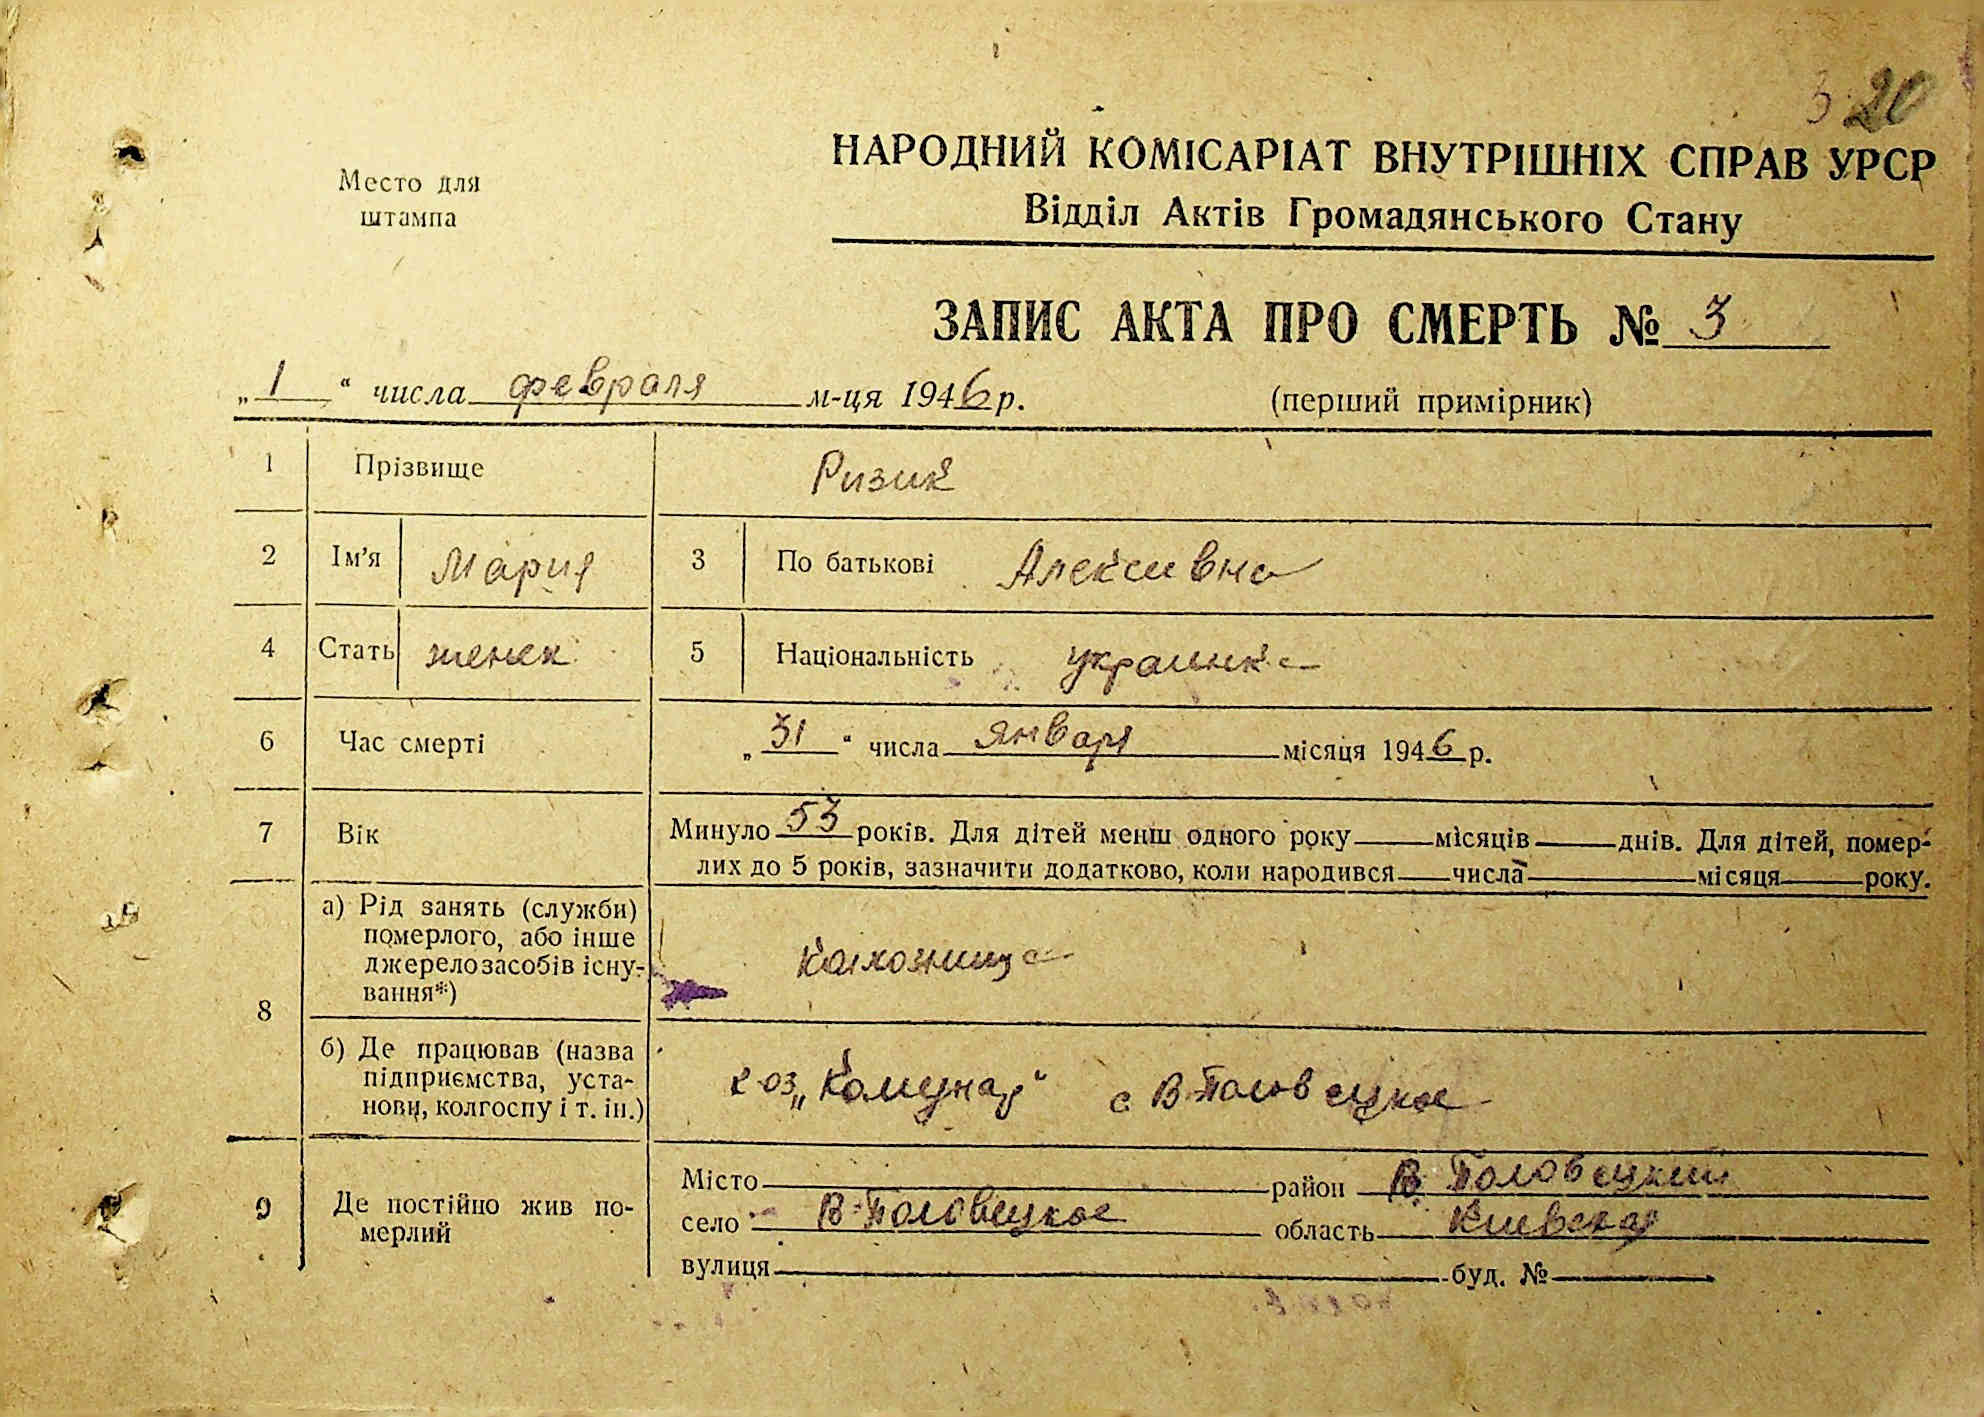 3 20
Место для
штампа
НАРОДНИЙ КОМІСАРІАТ ВНУТРІШНІХ СПРАВ УРСР
Відділ Актів Громадянського Стану
ЗАПИС АКТА ПРО СМЕРТЬ № 3
„1“ числа февраля м-ця 1946 р. (перший примірник)
1 Прізвище Ризик
2 Ім'я Мария 3 По батькові Алексивна
4 Стать женск 5 Національність украинка
6 Час смерті „31“ числа января місяця 1946 р.
7 Вік Минуло 53 років. Для дітей менш одного року місяців днів. Для дітей, помер-
лих до 5 років, зазначити додатково, коли народився числа місяця року.
8 а) Рід занять (служби)
померлого, або інше
джерело засобів існу-
вання*) Колхозница
б) Де працював (назва
підприємства, уста-
нови, колгоспу і т. ін.) к-оз „Комунар“ с В-Половецкое
9 Де постійно жив по-
мерлий
Місто район В. Половецкий
село В-Половецкое область Киевская
вулиця буд. №